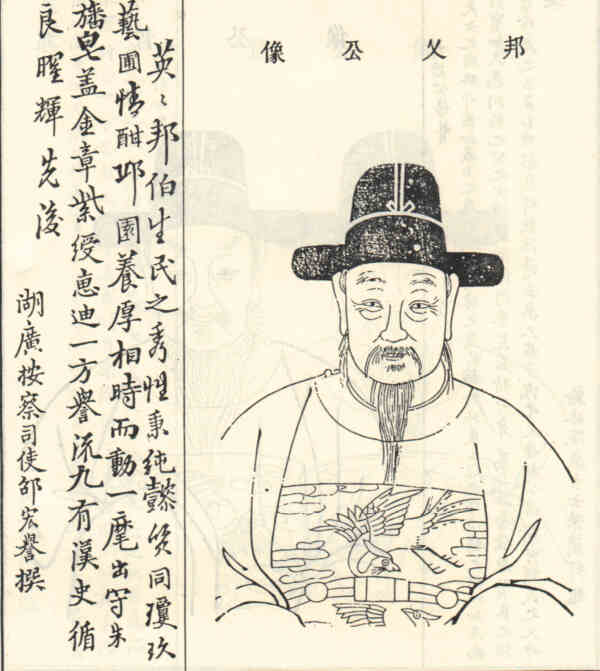 邦乂公像
英〻邦伯生民之秀性秉純懿質同瓊玖
藝圃情酣邱園養厚相時而動一麾出守朱
旛皂盖金章紫綬惠迪一方譽流九有漢史循
良曜輝先後
湖廣按察司使邵宏譽撰